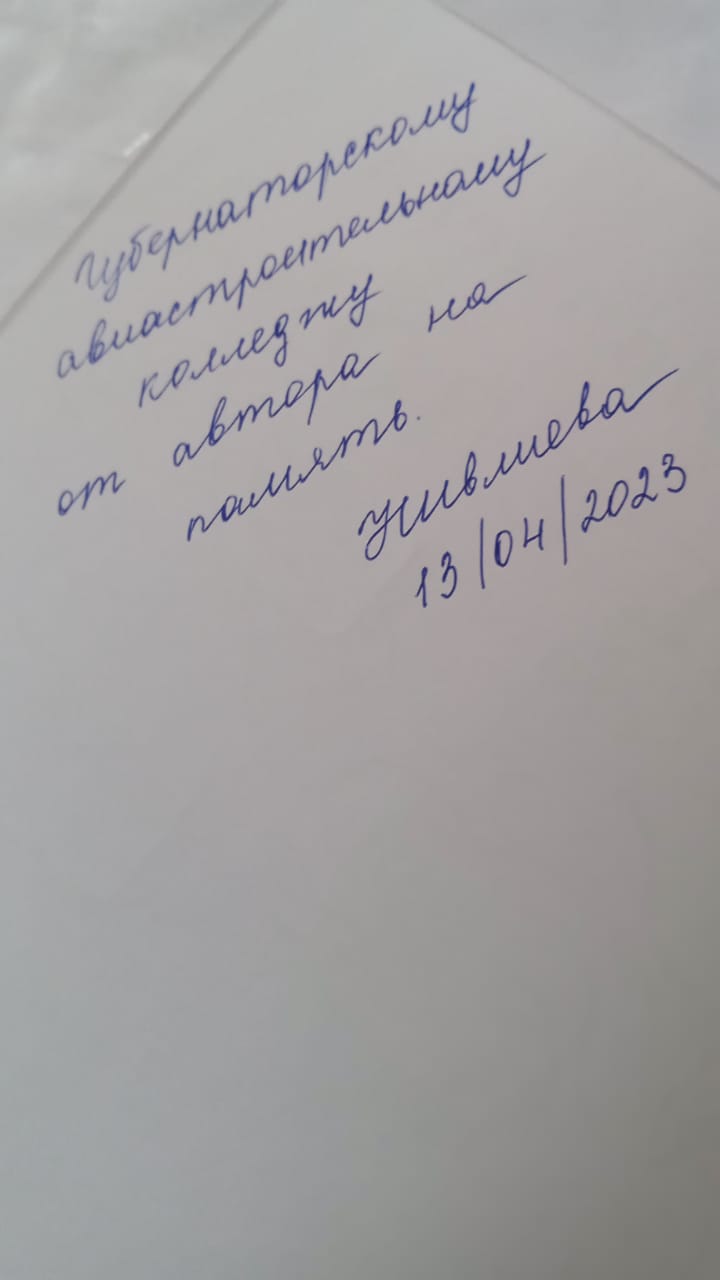 Губернаторскому
авиастроительному
колледжу
от автора на
память.
Живлиева
13/04/2023